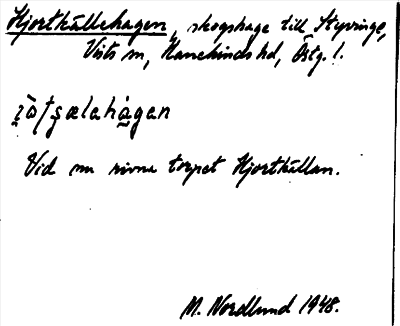 Hjortkällehagen, skogshage till Styvinge,
Vists sn, Hanekinds hd, Östg. l.
Vid nu rivna torpet Hjortkällan.
M. Nordlund 1948.